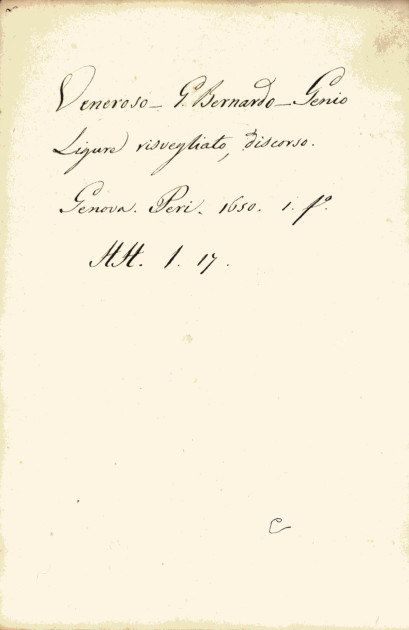 Veneroso - G. Bernardo - Genio
Ligure risvegliato, discorso.
Genova. Peri. 1650. 1. fo.
HH. 1. 17.